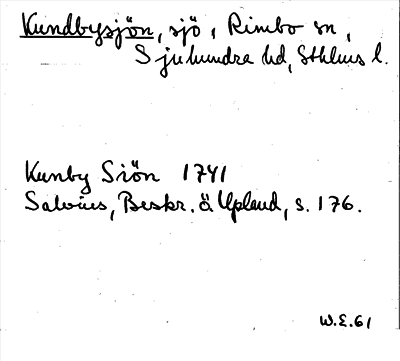 Kundbysjön, sjö, Rimbo sn,
Sjuhundra hd, Sthlms l.
Kunby Siön 1741
Salvius, Beskr. ö. Upland, s. 176.
W.E.61